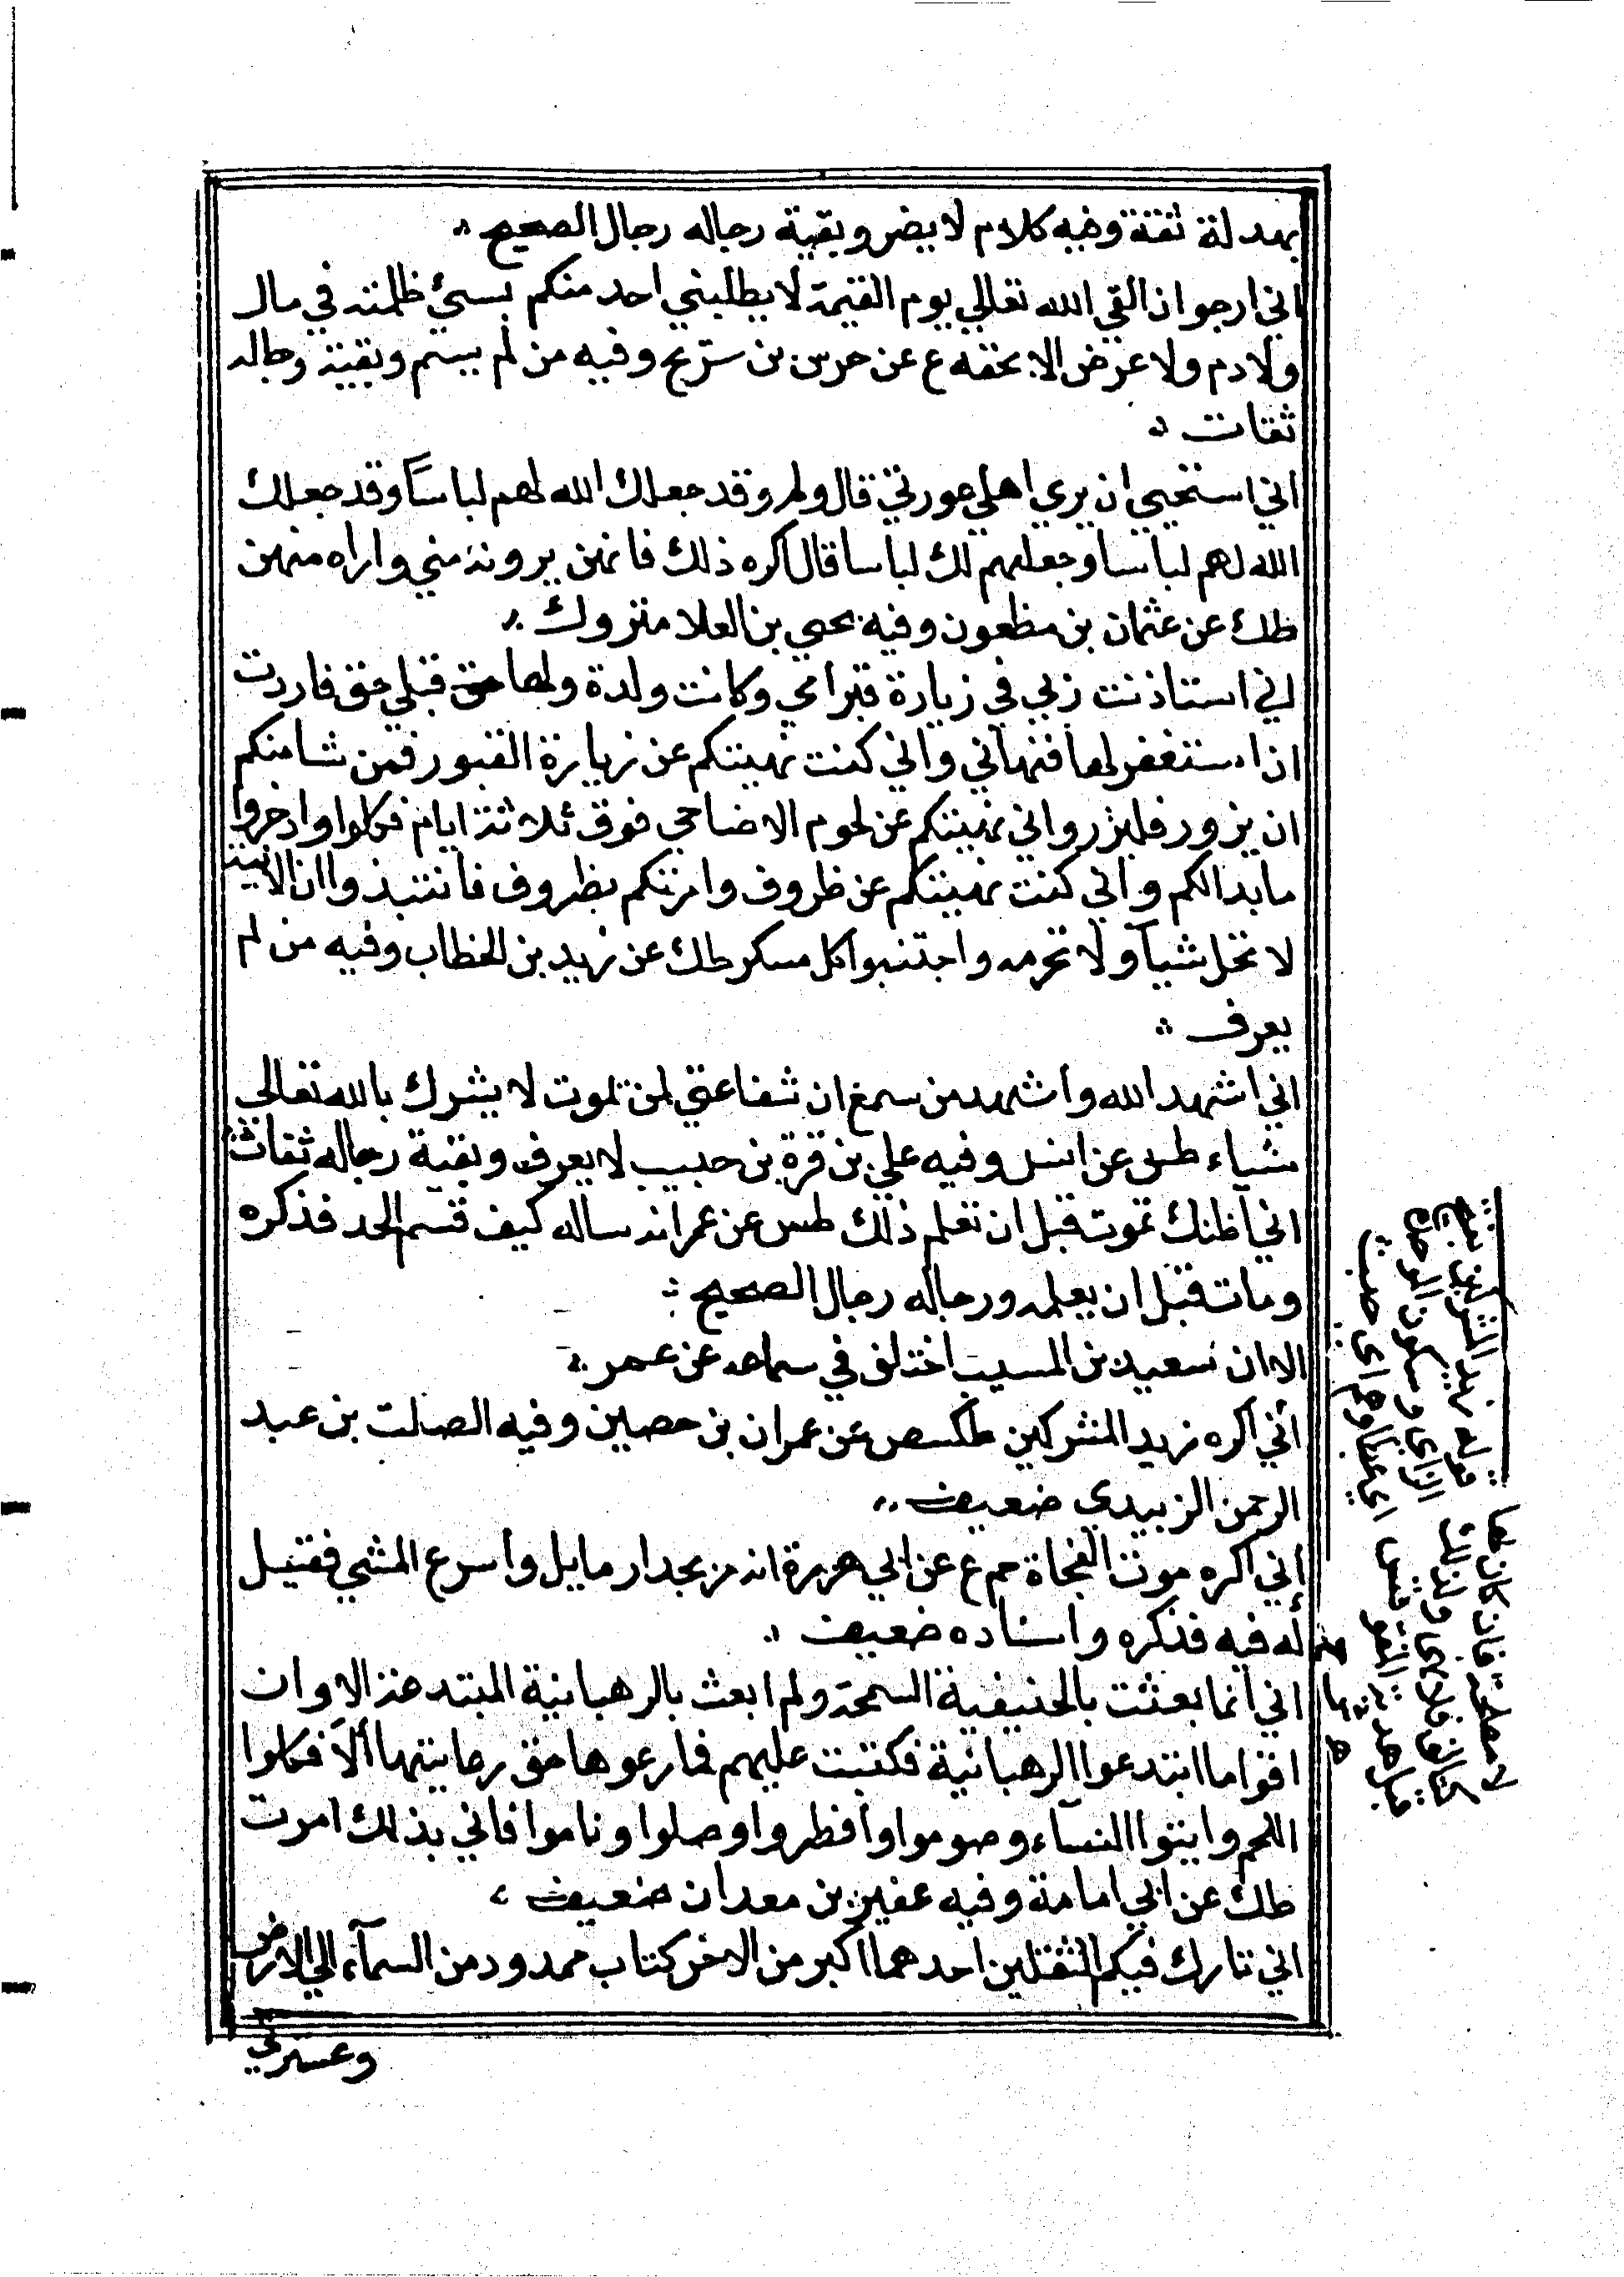 بهدلة ثقة وفيه كلام لا يضر وبقية رجاله رجال الصحيح
اني ارجوا ن القي الله تعالي يوم القيمة لا يطلبني احد منكم بسئ ظلمته في مال
ولا دم ولا عرض الا بحقه ع عن حرس بن سريج وفيه من لم يسم وبقية رجاله
ثقات
اني استحيي ان يري اهلي عورتي قال ولم وقد جعلك الله لهم لباسا وقد جعلك
الله لهم لباسا وجعلهم لك لباسا قال اكره ذلك فانهن يرونه مني واراه منهن
طك عن عثمان بن مظعون وفيه يحيي بن العلا متروك
اني استاذنت ربي في زيارة قبر امي وكانت ولدة ولها حق قبلي حق فاردت
ان استغفر لها فنهاني واني كنت نهيتكم عن زيارة القبور فمن شا منكم
ان يزور فليزر واني نهيتكم عن لحوم الاضاحي فوق ثلاثة ايام فكلوا وادخروا
ما بدا لكم واني كنت نهيتكم عن ظروف وامرتكم بظروف فانتبذوا ان الانية
لا تحل شيأ ولا تحرمه واجتنبوا كل مسكر طك عن زيد بن الخطاب وفيه من لم
يعرف
اني اشهد الله واشهد من سمع ان شفاعتي لمن تموت لا يشرك بالله تعالي
شياء طس عن انس وفيه علي بن قرة بن حبيب لا يعرف وبقية رجاله ثقات
اني اظنك تموت قبل ان تعلم ذلك طس عن عمر انه ساله كيف قسم الجد فذكره
ومات قبل ان يعلمه ورجاله رجال الصحيح
الا ان سعيد بن المسيب اختلف في سماعه عن عمر
اني اكره زبد المشركين طكسص عن عمران بن حصين وفيه الصلت بن عبد
الرحمن الزبيدي ضعيف
اني اكره موت الفجاة حم ع عن ابي هريرة انه مر بجدار مايل واسرع المشي فقيل
له فيه فذكره واسناده ضعيف
اني انما بعثت بالحنيفية السمحة ولم ابعث بالرهبانية المبتدعة الا وان
اقواما ابتدعوا الرهبانية فكتبت عليهم فما رعوها حق رعايتها ألا فكلوا
اللحم وايتوا النساء وصوموا وافطروا وصلوا وناموا فاني بذلك امرت
طك عن ابي امامة وفيه عفير بن معدان ضعيف
اني تارك فيكم الثقلين احدهما اكبر من الاخر كتاب ممدود من السمآء الي الارض
وعترتي
قوله زبد المشركين بفتح
الزاى وسكون الموحدة